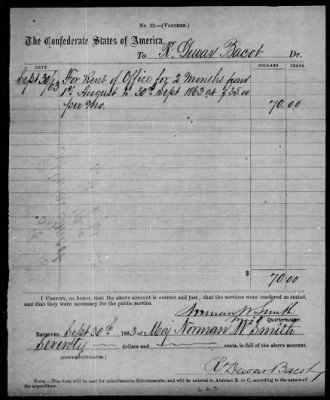 No. 22.—(Voucher.)
The Confederate States of America,
To R. Dewar Bacot Dr.
DATE DOLLARS CENTS
Sept 30/63 For Rent of Office for 2 Months from
1st August to 30th Sept 1863 at $35.00
per Mo. 70.00
$ 70.00
I Certify, on honor, that the above account is correct and just; that the services were rendered as stated,
and that they were necessary for the public service.
Norman W Smith
Quartermaster.
Received Sept 30th 1863 of Maj Norman W Smith
Seventy dollars and cents, in full of the above account.
(SIGNED DUPLICATES.)
R Dewar Bacot
Note.—This form will be used for miscellaneous disbursements, and will be entered in Abstract B. or C, according to the nature
of the expenditure.